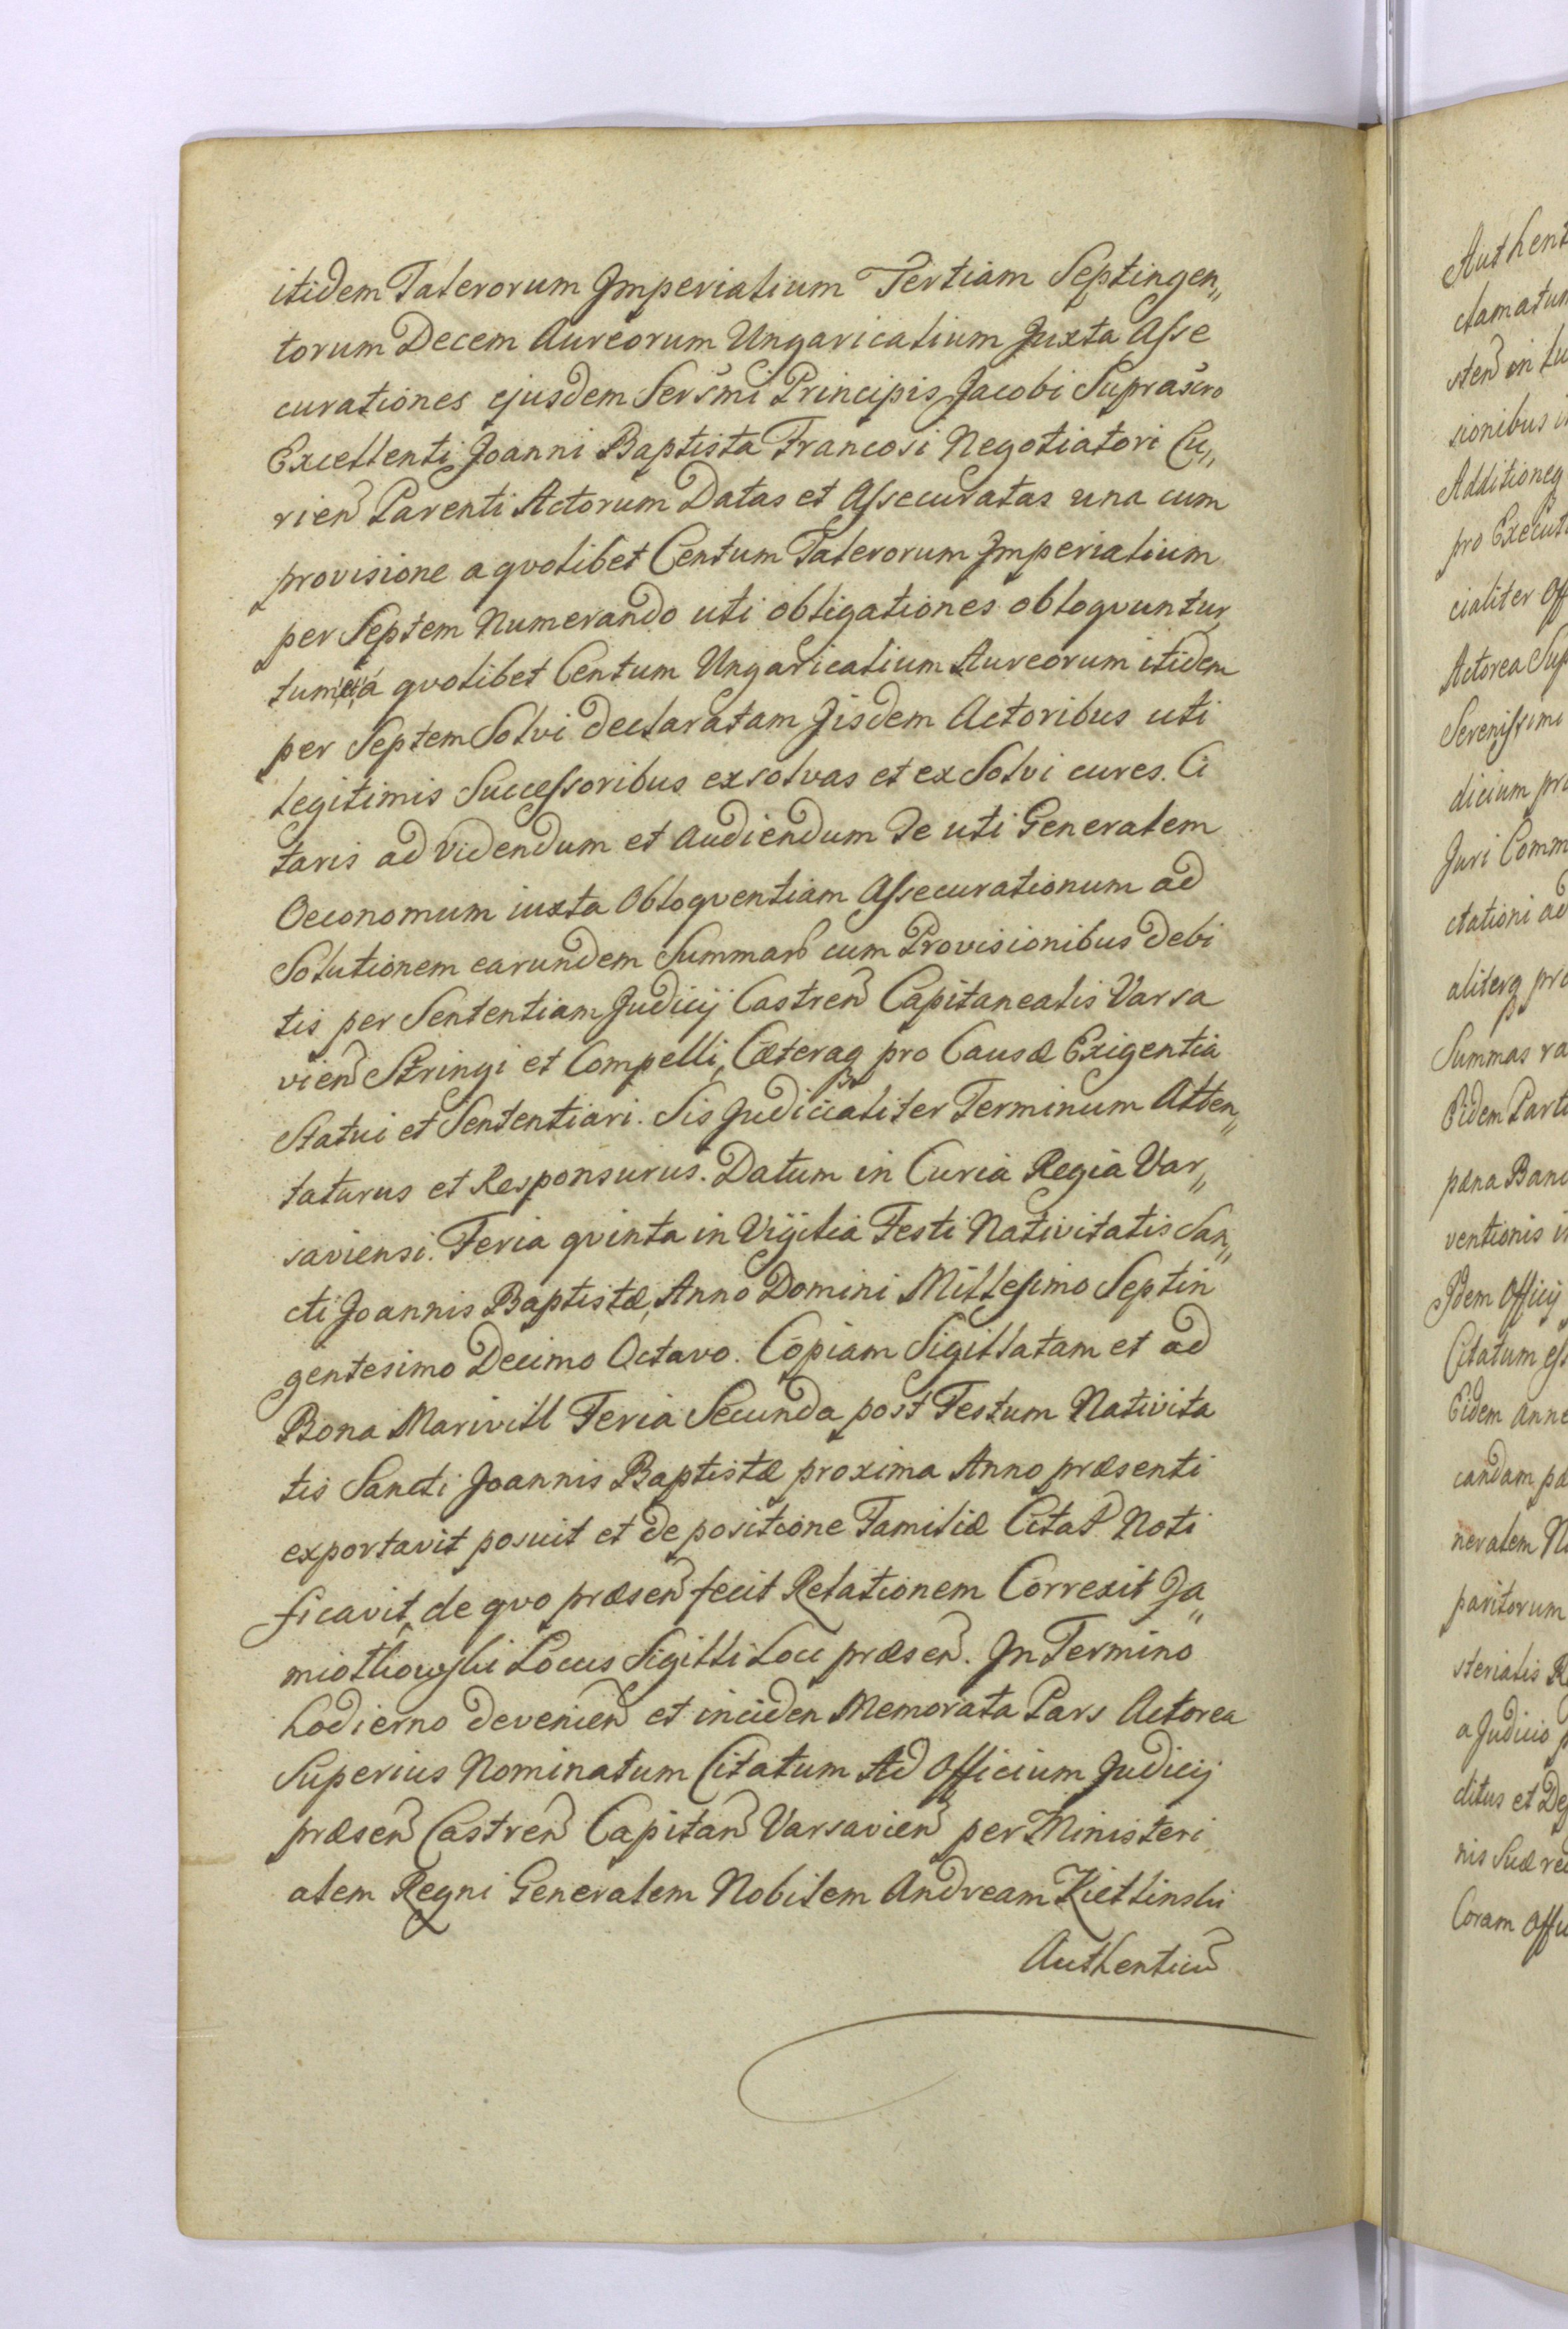 itidem Talerorum Imperialium Tertiam Septingen„
torum Decem Aureorum Ungaricalium Juxta Asse
curationes ejusdem Sersmi Principis Jacobi Suprascro
Excellenti Joanni Baptista Francosi Negotiatori Cu„
rien Parenti Actorum Datas et Assecuratas una cum
provisione a qvolibet Centum Talerorum Imperialium
per Septem Numerando uti obligationes obloqvuntur
tum et á qvolibet Centum Ungaricalium Aureorum itidem
per Septem Solvi declaratam Jisdem Actoribus uti
Legitimis Successoribus exsolvas et exSolvi cures. Ci
taris ad Videndum et Audiendum Te uti Generalem
Oeconomum iuxta Obloqventiam Assecurationum ad
Solutionem earundem Summar cum Provisionibus Debi
tis per Sententiam Judicij Castren Capitanealis Varsa
vien Stringi et Compelli, Cæteraq pro Causæ Exigentia
Statui et Sententiari. Sis Judicialiter Terminum Atten„
taturus et Responsurus. Datum in Curia Regia Var„
saviensi. Feria qvinta in Vigilia Festi Nativitatis San„
cti Joannis Baptistæ, Anno Domini Millesimo Septin
gentesimo Decimo Octavo. Copiam Sigillatam et ad
Bona Marivill Feria Secunda post Festum Nativita
tis Sancti Joannis Baptistæ proxima Anno præsenti
exportavit posuit et de positione Familiæ Citat Noti
ficavit, de qvo præsen fecit Relationem Correxit Ja„
miotkowski Locus Sigilli Loci præsen. In Termino
hodierno devenien et inciden Memorata Pars Actorea
Superius Nominatum Citatum Ad Officium Judicij
præsen Castren Capitan Varsavien per Ministeri
alem Regni Generalem Nobilem Andream Kietlinski
Authenticu
Authent
clamatum
sten in
sionibus
Additioneq
pro Execut
cialiter Off
Actorea Sup
Serenissimi
dicium pr
Juri Comm
ctationi ad
aliterq pro
Summas ra
Eidem Parti
pæna Bann
ventionis i
Idem Officij
Citatum ess
Eidem anne
candam pæ
neralem N
paritorum
sterialis Re
a Judicio p
ditus et Dep
nis suæ re
Coram Offi